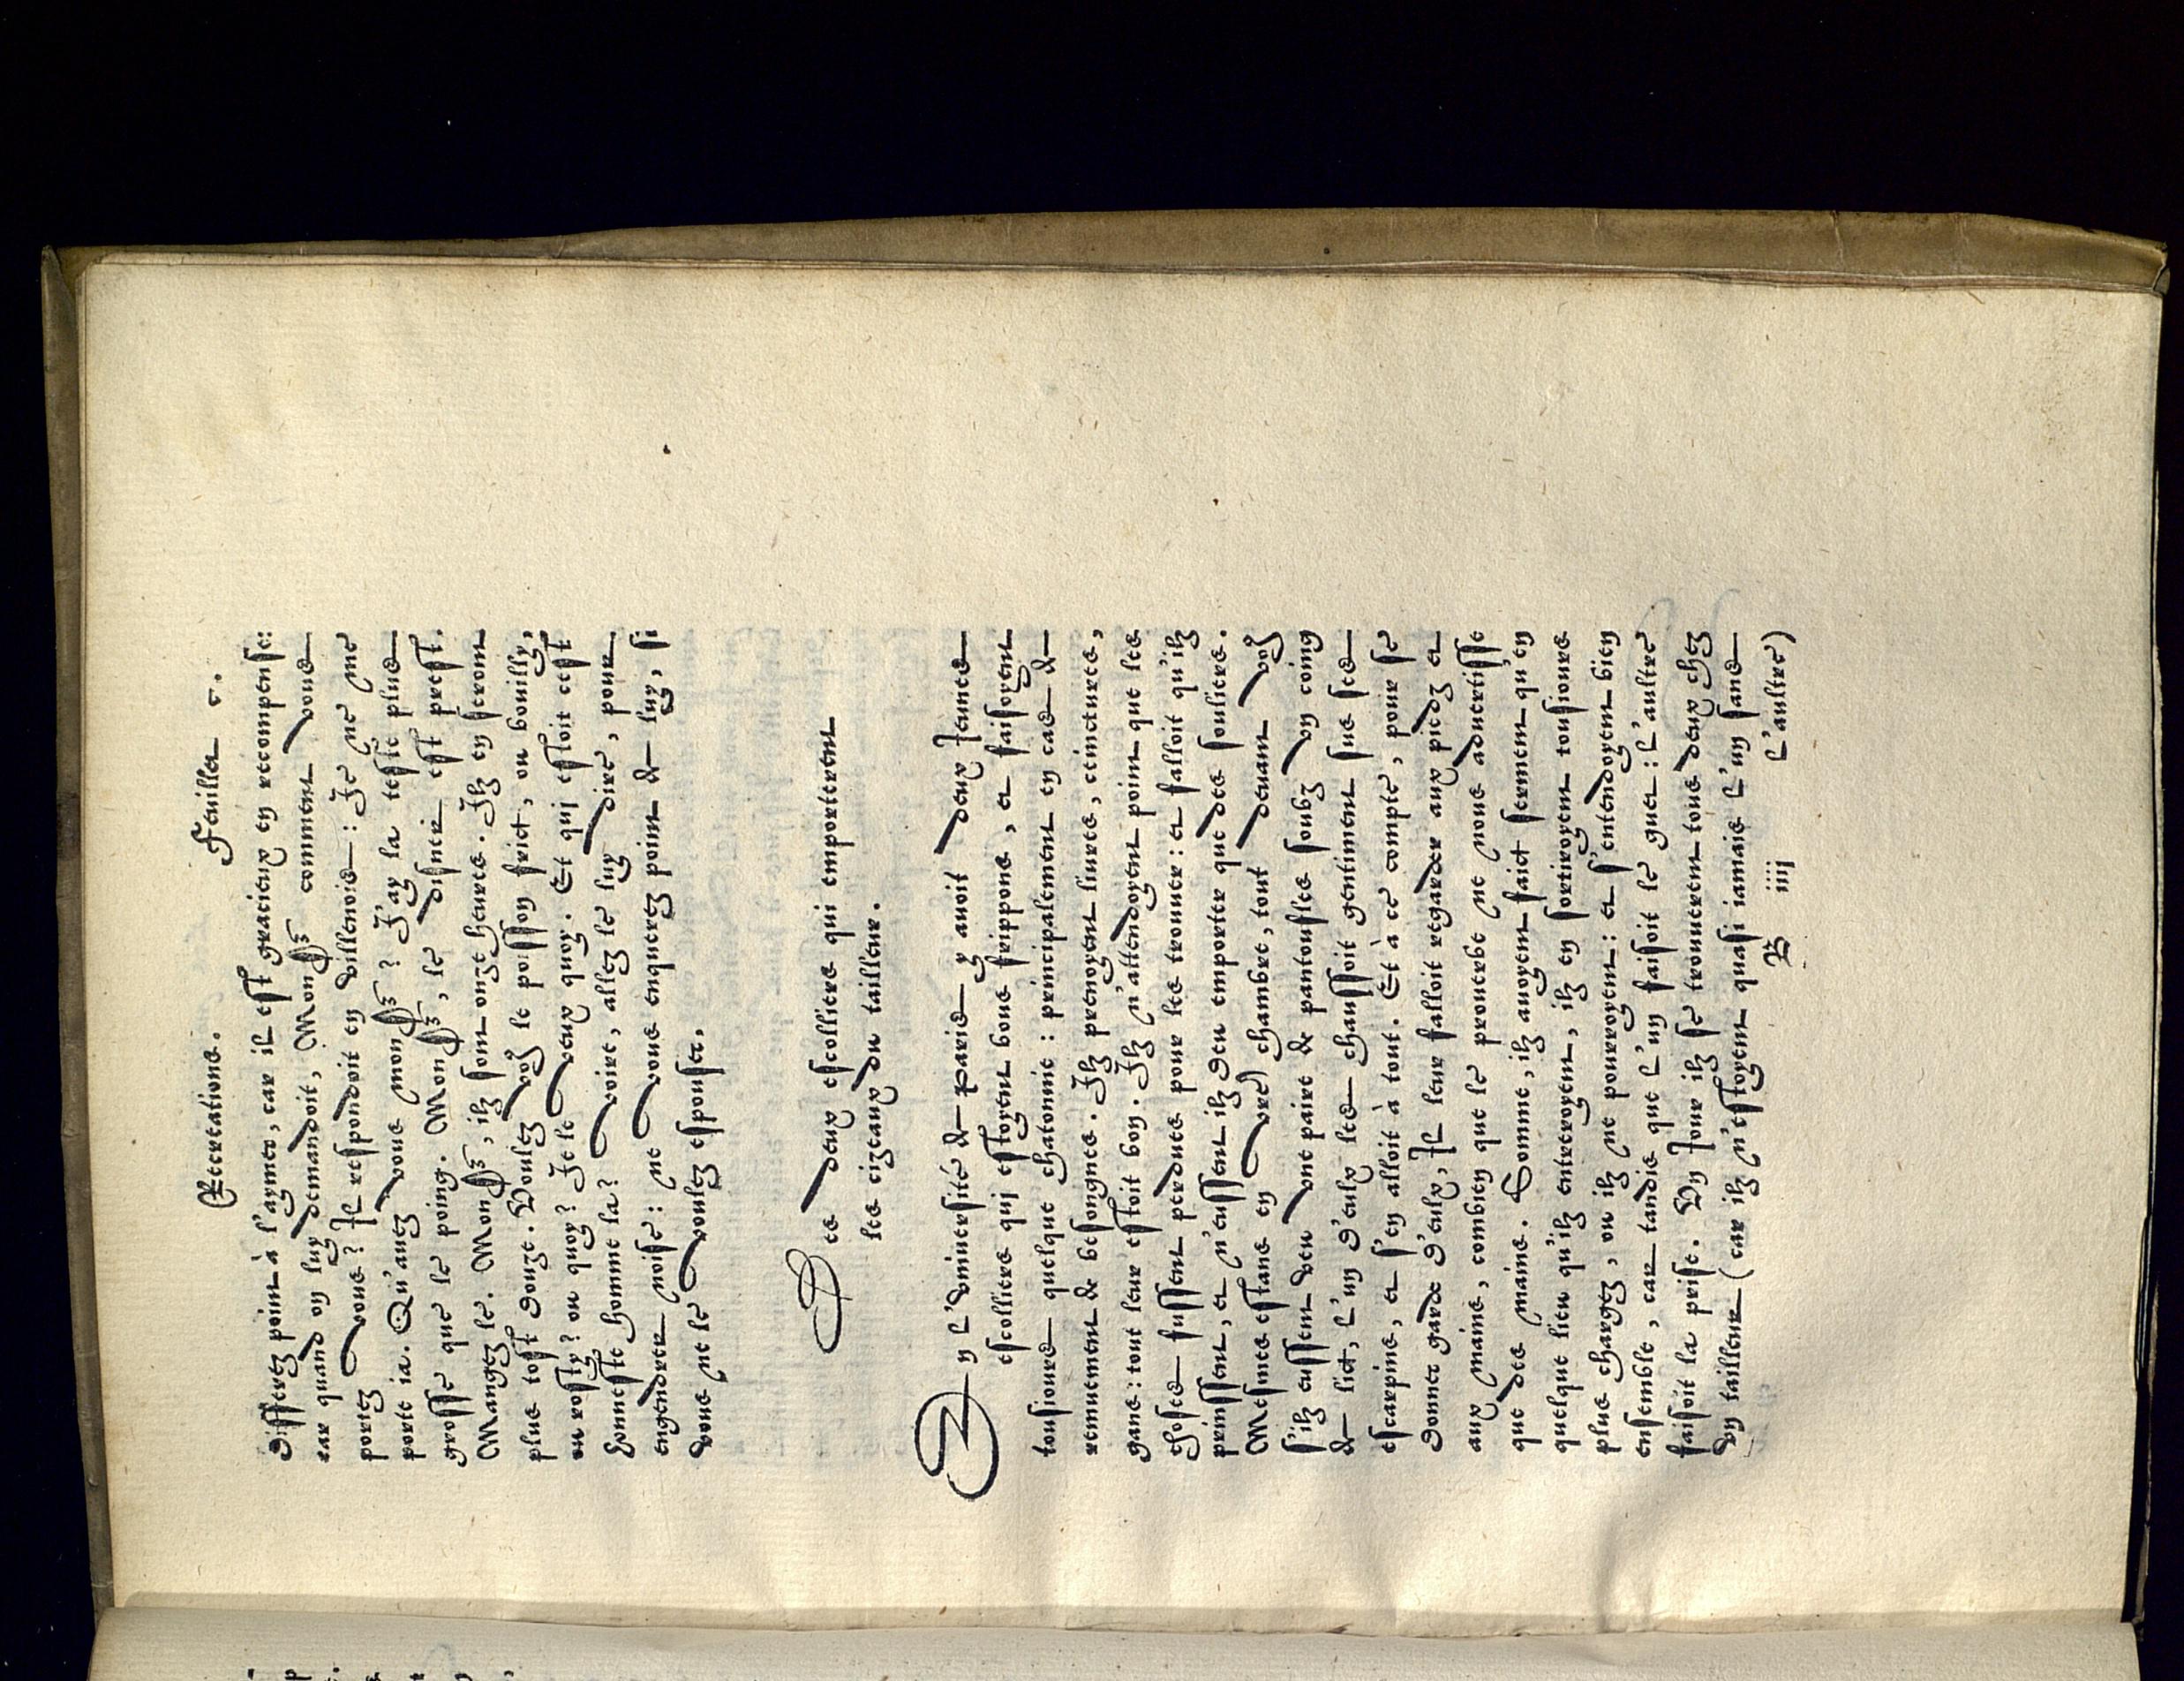 Recreations. Feuillet c.
differez point à l'aymer, car il est gracieux en recompense:
car quand on luy demandoit, Monsr comment vous
portez vous? Il respondoit en villenois: Je ne me
porte ia. Qu'auez vous monsr? J'ay la teste plus
grosse que le poing. Monsr, le disner est prest.
Mangez le. Monsr, ilz sont onze heures. Ilz en seront
plus tost douze. Voulez voz le poisson frict, ou bouilly,
ou rosty? ou quoy? Je le veux quoy. Et qui estoit cest
honneste homme la? voire, allez le luy dire, pour
engendrer noise: ne vous enquerez point de luy, si
vous ne le voulez espouser.
Des deux escolliers qui emporterent
les cizeaux du tailleur.
En l'vniuersité de Paris y auoit deux jeunes
escolliers qui estoyent bons frippons, et faisoyent
tousiours quelque chatonnie: principalement en cas de
remuement de besongnes. Ilz prenoyent liures, cinctures,
gans: tout leur estoit bon. Ilz n'attendoyent point que les
choses fussent perdues pour les trouuer: et falloit qu'ilz
prinssent, et n'eussent ilz deu emporter que des souliers.
Mesmes estans en vore chambre, tout deuant voz
s'ilz eussent veu vne paire de pantoufles soubz vn coing
de lict, l'vn d'eulx les chaussoit gentiment sus ses
escarpins, et s'en alloit à tout. Et à ce compte, pour se
donner garde d'eulx, Il leur falloit regarder aux piedz et
aux mains, combien que le prouerbe ne nous aduertisse
que des mains. Somme, ilz auoyent faict serment qu'en
quelque lieu qu'ilz entreroyent, ilz en sortiroyent tousiours
plus chargez, ou ilz ne pourroyent: et s'entendoyent bien
ensemble, car tandis que l'vn faisoit le guet: l'aultre
faisoit la prise. Vn jour ilz se trouuerent tous deux chez
vn tailleur (car ilz n'estoyent quasi iamais l'vn sans
B iiij l'aultre)